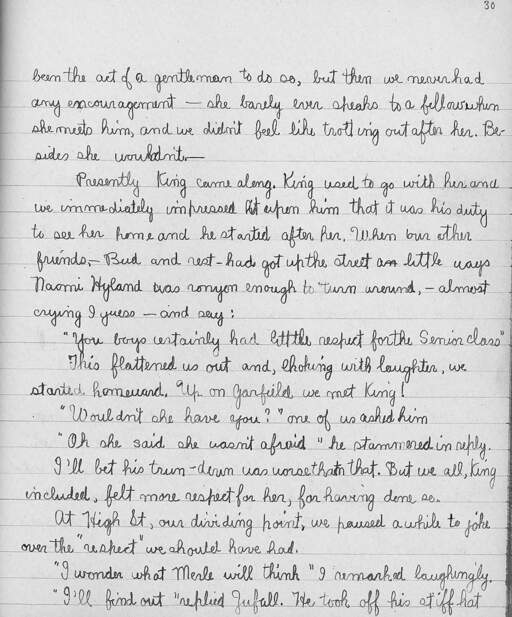 30
been the act of a gentleman to do so, but then we never had
any encouragement — she barely ever speaks to a fellow when
she meets him, and we didn't feel like trotting out after her. Be-
sides she wouldn't —
Presently King came along. King used to go with her and
we immediately impressed it upon him that it was his duty
to see her home and he started after her. When our other
friends, — Bud and rest — had got up the street a little ways
Naomi Hyland was enough to turn around, — almost
crying I guess — and say:
"You boys certainly had little respect for the Senior class"
This flattened us out and, choking with laughter, we
started homeward. Up on Garfield we met King!
"Wouldn't she have you?" one of us asked him
"Oh she said she wasn't afraid" he stammered in reply.
I'll bet his turn-down was worse than that. But we all, King
included, felt more respect for her, for having done so.
At High St, our dividing point, we paused awhile to joke
over the "respect" we should have had.
"I wonder what Merle will think" I remarked laughingly.
"I'll find out" replied He took off his stiff hat